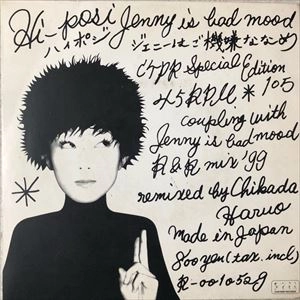 Hi-posi Jenny is bad mood
ハイポジ ジェニーはご機嫌ななめ
Special Edition
45RPM * 105
coupling with
Jenny is bad mood
R&R mix '99
remixed by Chikada
Haruo
Made in Japan
800yen (tax. incl)